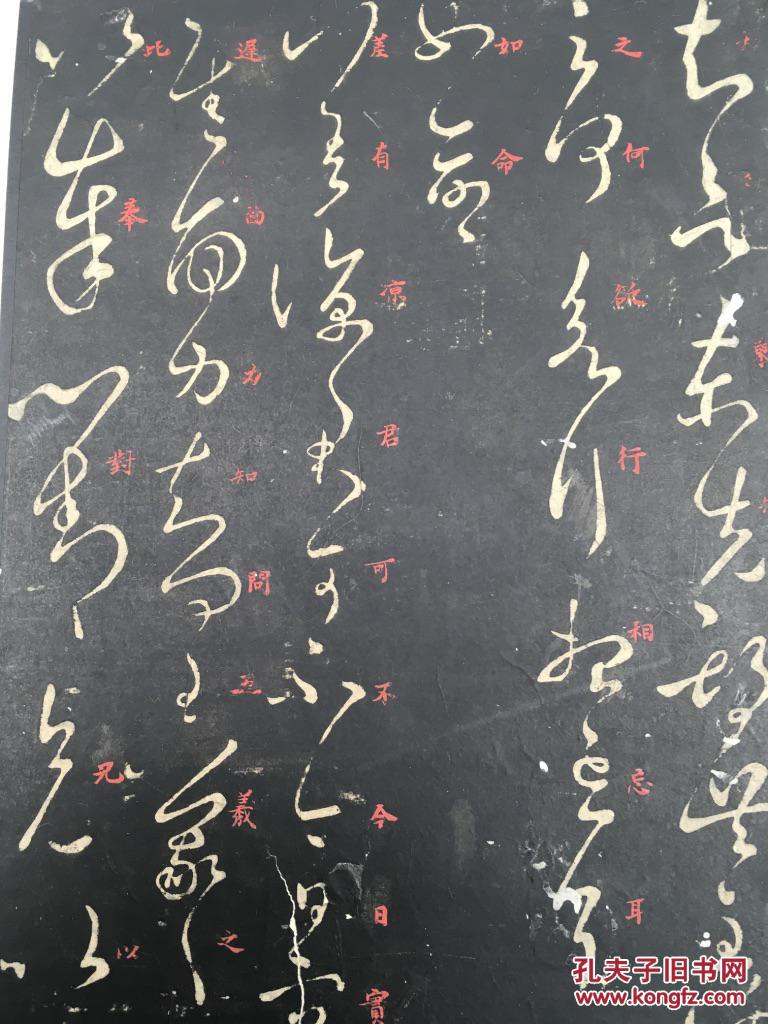 知欲東先期共至
之何欲行相忘耳
如命
差有凉君可不今日實
遲面力知問王羲之
比奉對兄以
孔夫子旧书网
www.kongfz.com